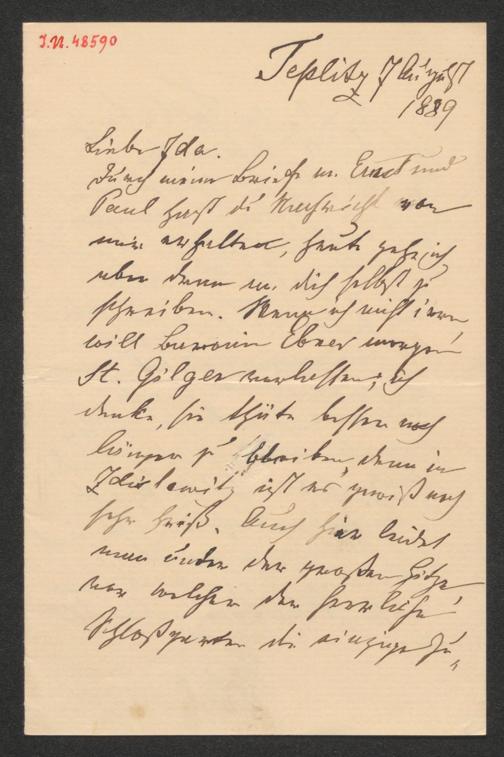 J.N. 48590
Teplitz 7 August
1889
Liebe Ida.
Durch meine Briefe an Ernst und
Paul hast du Nachricht von
mir erhalten, heute gehe ich
aber daran an dich selbst zu
schreiben. Wenn ich nicht irre,
will Baronin Ebner morgen
St. Gilgen verlassen; ich
denke, sie thäte besser noch
länger zu bleiben, denn in
Zdislawitz ist es gewiß noch
sehr heiß. Auch hier leidet
man unter der großen Hitze
vor welcher der herrliche
Schloßgarten die einzige Zu-